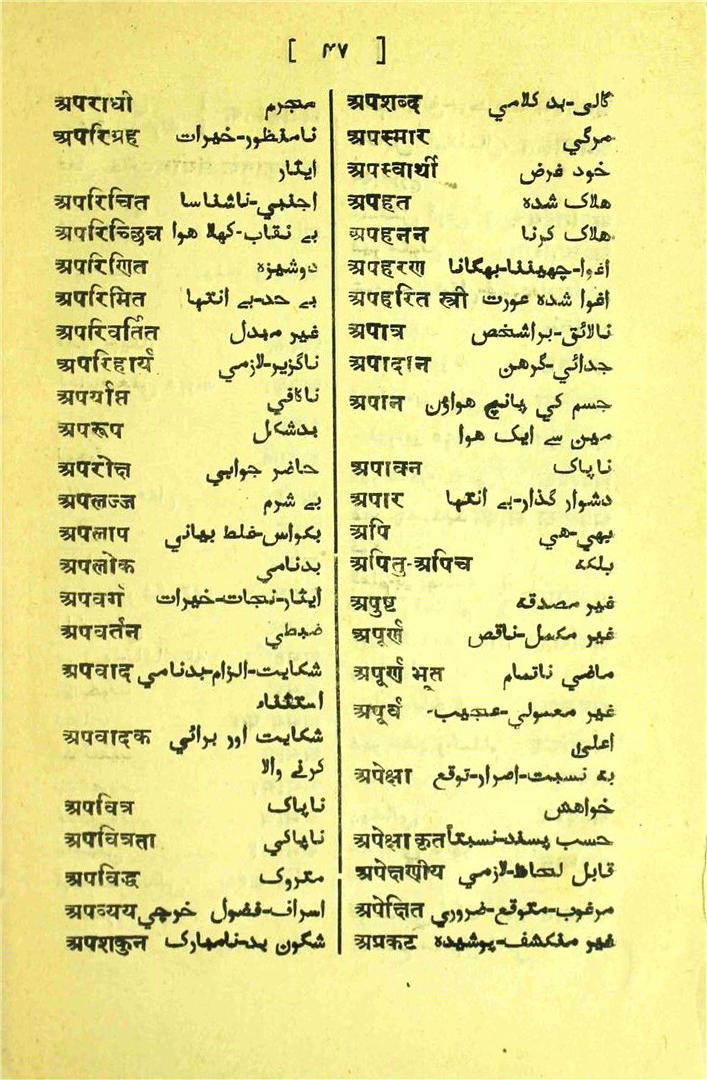 [ ۴۷ ]
अपराधी مجرم
अपरिग्रह نامنظور-خیرات
ایثار
अपरिचित اجنبي-ناشناسا
अपरिच्छिन्न بے نقاب-کھلا ہوا
अपरिणित دوشیزہ
अपरिमित بے حد-بے انتہا
अपरिवर्तित غیر مبدل
अपरिहार्य ناگزیر-لازمي
अपर्याप्त ناکافي
अपरूप بدشکل
अपरोक्ष حاضر جوابي
अपलज्ज بے شرم
अपलाप بکواس-غلط بیاني
अपलोक بدنامي
अपवर्ग ایثار-نجات-خیرات
अपवर्तन ضبطي
अपवाद شکایت-الزام-بدنامي
استثناء
अपवादक شکایت اور برائي
کرنے والا
अपवित्र ناپاک
अपवित्रता ناپاکي
अपविद्ध متروک
अपव्यय اسراف-فضول خرچي
अपशकुन شگون بد-نامبارک
अपशब्द گالی-بد کلامي
अपस्मार مرگي
अपस्वार्थी خود غرض
अपहत ہلاک شدہ
अपहनन ہلاک کرنا
अपहरण اغوا-چھیننا-بھگانا
अपहरित स्त्री اغوا شدہ عورت
अपात्र نالائق-برا شخص
अपादान جدائي-گرہن
अपान جسم کي پانچ ھواؤں
میں سے ایک ھوا
अपावन ناپاک
अपार دشوار گذار-بے انتہا
अपि بھي-ھي
अपितु-अपिच بلکہ
अपुष्ट غیر مصدقہ
अपूर्ण غیر مکمل-ناقص
अपूर्ण भूत ماضي ناتمام
अपूर्व غیر معمولي-عجیب-
اعلیٰ
अपेक्षा بہ نسبت-اصرار-توقع
خواھش
अपेक्षा कृत حسب پسند-نسبتاً
अपेक्षणीय قابل لحاظ-لازمي
अपेक्षित مرغوب-متوقع-ضروري
अप्रकट غیر منکشف-پوشیدہ